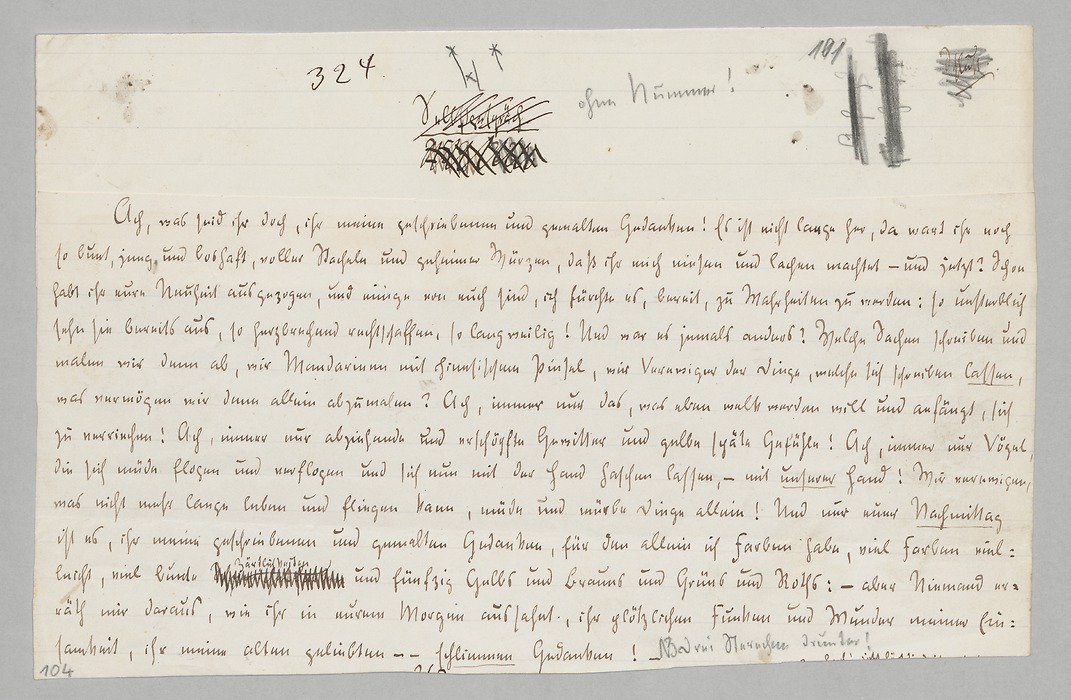 324
ohne Nummer!
191
Ach, was seid ihr doch, ihr meine geschriebenen und gemalten Gedanken! Es ist nicht lange her, da wart ihr noch
so bunt, jung und boshaft, voller Stacheln und geheimer Würzen, daß ihr mich niesen und lachen machtet – und jetzt? Schon
habt ihr eure Neuheit ausgezogen, und einige von euch sind, ich fürchte es, bereit, zu Wahrheiten zu werden: so unsterblich
sehn sie bereits aus, so herzbrechend rechtschaffen, so langweilig! Und war es jemals anders? Welche Sachen schreiben und
malen wir denn ab, wir Mandarinen mit chinesischem Pinsel, wir Verewiger der Dinge, welche sich schreiben lassen,
was vermögen wir denn allein abzumalen? Ach, immer nur das, was eben welk werden will und anfängt, sich
zu verriechen! Ach, immer nur abziehende und erschöpfte Gewitter und gelbe späte Gefühle! Ach, immer nur Vögel,
die sich müde flogen und verflogen und sich nun mit der Hand haschen lassen, – mit unserer Hand! Wir verewigen,
was nicht mehr lange leben und fliegen kann, müde und mürbe Dinge allein! Und nur euer Nachmittag
ist es, ihr meine geschriebenen und gemalten Gedanken, für den allein ich Farben habe, viel Farben viel=
leicht, viel bunte Zärtlichkeiten und fünfzig Gelbs und Brauns und Grüns und Roths: – aber Niemand er=
räth mir daraus, wie ihr in eurem Morgen aussahet, ihr plötzlichen Funken und Wunder meiner Ein=
samkeit, ihr meine alten geliebten – – schlimmen Gedanken! – NB drei Sternchen drunter!
104